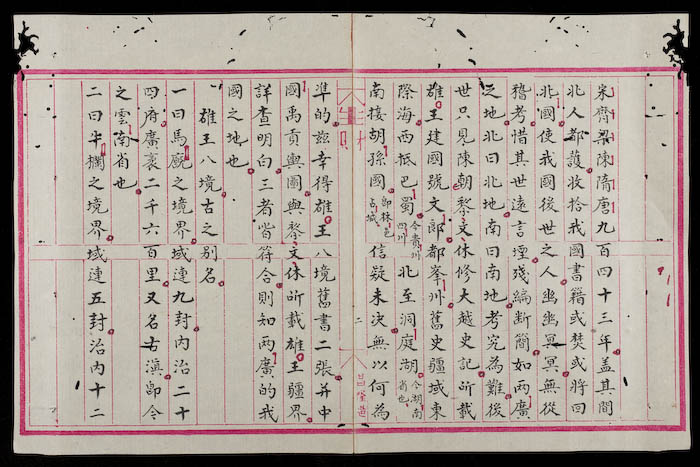 宋齊梁陳隋唐九百四十三年盖其間
北人都護收拾我國書籍或焚或將回
北國使我國後世之人幽幽冥冥無從
稽考惜其世遠言堙殘編斷簡如兩廣
之地北曰北地南曰南地考究為難後
世只見陳朝黎文休修大越史記所載
雄王建國號文郎都峯州舊史疆域東
際海西抵巴蜀今貴州四川北至洞庭湖今湖南省也
南接胡孫國即林邑占城信疑未決無以何為
準的茲幸得雄王八境舊書二張并中
國禹貢輿圖與黎文休所載雄王疆界
詳查明白三者皆符合則知兩廣的我
國之地也
雄王八境古之別名
一曰馬厩之境界域連九封内治二十
四府廣袤二千六百里又名古滇即今
之雲南省也
二曰半欄之境界域連五封治内十二
二